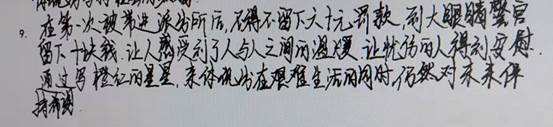 9. 在第一次被带进派出所后,不得不留下六十元罚款,到大眼睛警官
留下十块钱,让人感受到了人与人之间的温暖,让忧伤的人得到安慰.
通过写橙红的星星,来体现出在艰难生活的同时,仍然对未来保
持希望